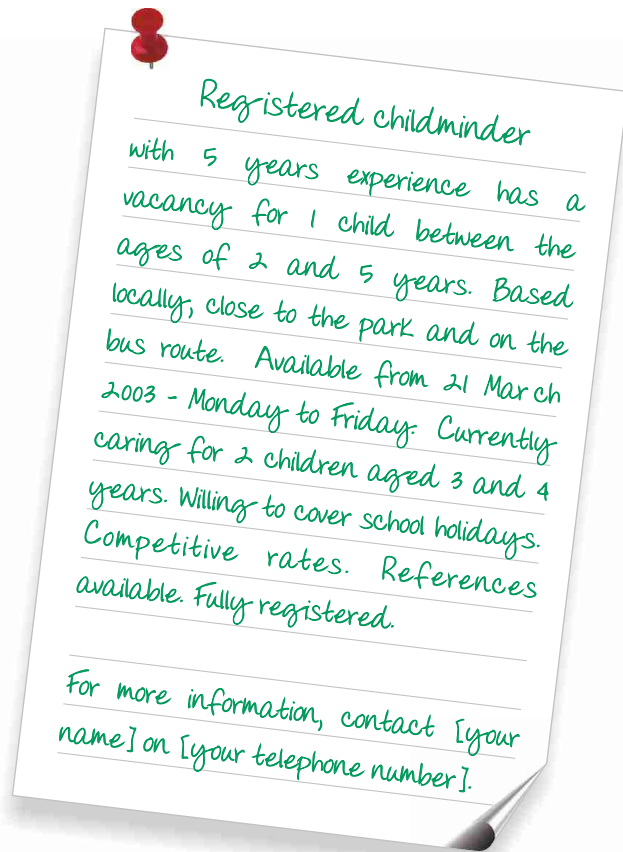 Registered childminder
with 5 years experience has a
vacancy for 1 child between the
ages of 2 and 5 years. Based
locally, close to the park and on the
bus route. Available from 21 March
2003 - Monday to Friday. Currently
caring for 2 children aged 3 and 4
years. Willing to cover school holidays.
Competitive rates. References
available. Fully registered.
For more information, contact [your
name] on [your telephone number].